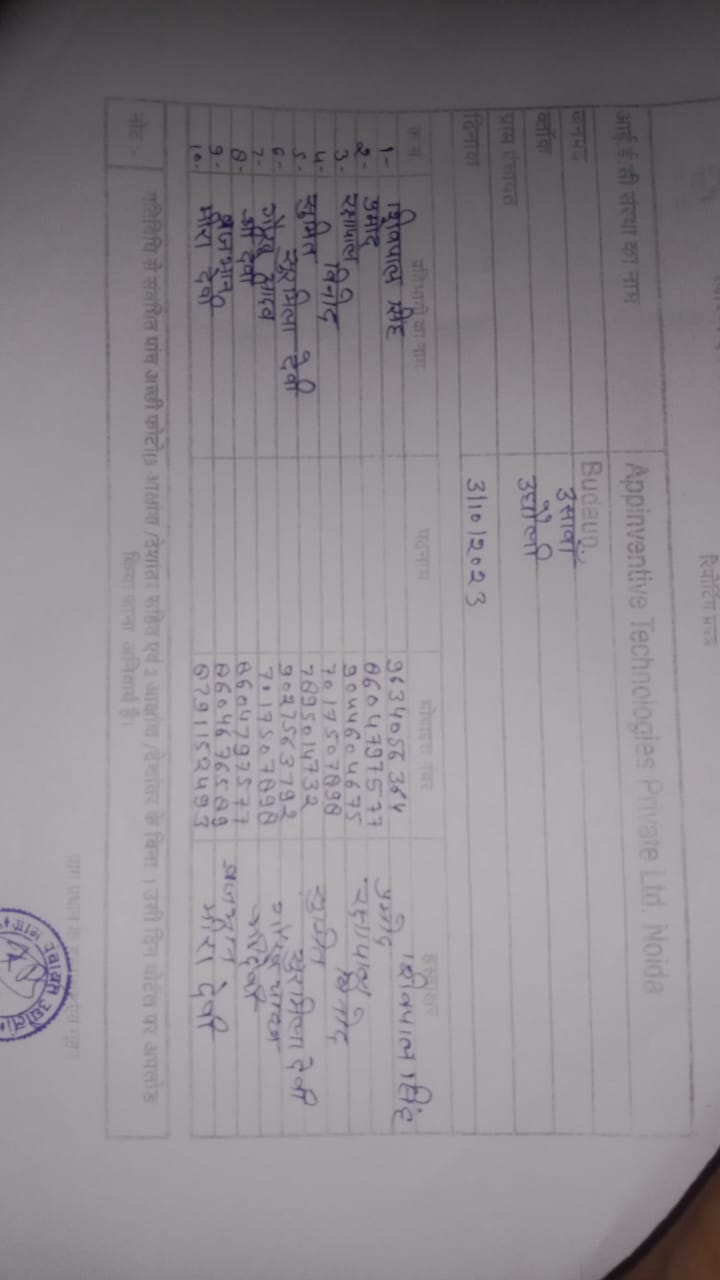 रिपोर्टिंग प्रपत्र
आई.ई.सी संस्था का नाम Appinventive Technologies Private Ltd. Noida
जनपद Budaun
ब्लॉक उसावां
ग्राम पंचायत
दिनांक 3/10/2023
क्रम प्रतिभागी का नाम पदनाम मोबाइल नंबर हस्ताक्षर
1- शिवपाल सिंह 9634056364 शिवपाल सिंह
2- प्रमोद 8604797577 प्रमोद
3- 9044604675
4- विनोद 7017507898 विनोद
5- सुमित 7895014732 सुमित
6- सुरमिला देवी 9027563792 सुरमिला देवी
7- यादव 7017507898 यादव
8- श्री देवी 8604797577
9- ब्रजभान 8604676589 ब्रजभान
10- मीरा देवी 8791152493 मीरा देवी
नोट :- गतिविधि से संबंधित पांच अच्छी फोटो(3 आक्षांश /देशांतर सहित एवं 2 आक्षांश /देशांतर के बिना ) उसी दिन पोर्टल पर अपलोड
किया जाना अनिवार्य है।
ग्राम प्रधान के